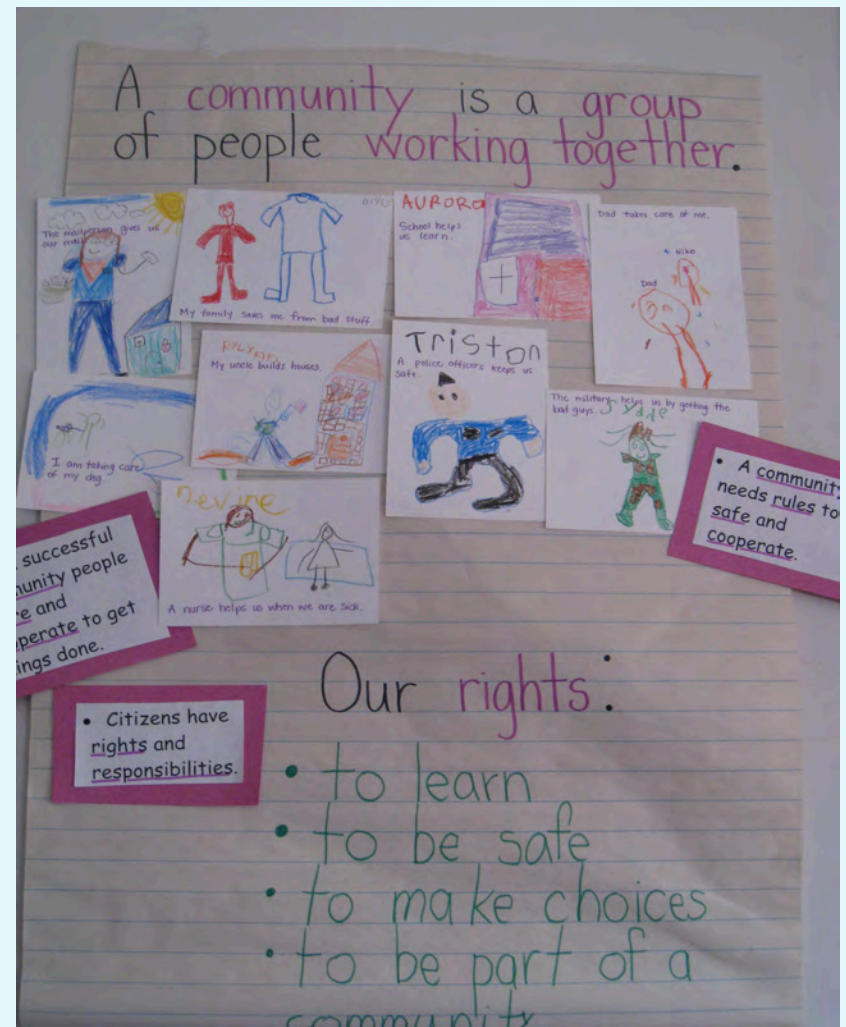 A community is a group
of people working together.
The mailperson gives us
our mail
My family saves me from bad stuff
AURORA
School helps
us learn.
Dad takes care of me.
Niko
Dad
My uncle builds houses.
Triston
A police officers keeps us
safe.
The military helps us by getting the
bad guys.
I am taking care
of my dog.
nevine
A nurse helps us when we are sick.
• A community
needs rules to
safe and
cooperate.
successful
unity people
e and
perate to get
ings done.
• Citizens have
rights and
responsibilities.
Our rights:
• to learn
• to be safe
• to make choices
• to be part of a
community